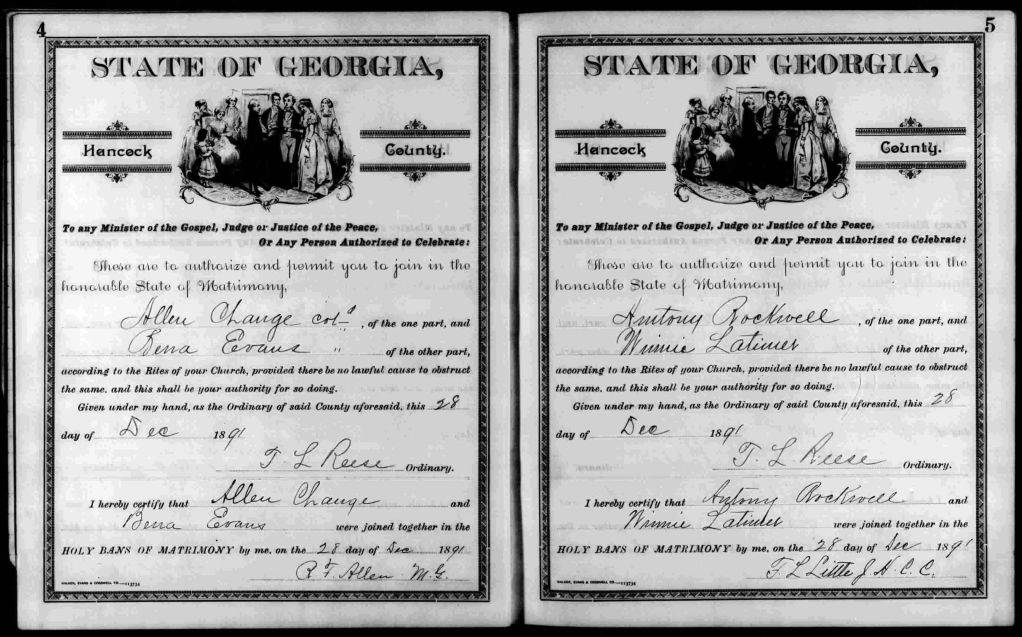 4
STATE OF GEORGIA,
Hancock County.
To any Minister of the Gospel, Judge or Justice of the Peace,
Or Any Person Authorized to Celebrate:
These are to authorize and permit you to join in the
honorable State of Matrimony,
Allen Change col'd, of the one part, and
Bena Evans " of the other part,
according to the Rites of your Church, provided there be no lawful cause to obstruct
the same, and this shall be your authority for so doing.
Given under my hand, as the Ordinary of said County aforesaid, this 28
day of Dec 1891
T. L Reese Ordinary.
I hereby certify that Allen Change and
Bena Evans were joined together in the
HOLY BANS OF MATRIMONY by me, on the 28 day of Dec 1891
R. F. Allen M.G.
WALKER, EVANS & COGSWELL CO.—113734
5
STATE OF GEORGIA,
Hancock County.
To any Minister of the Gospel, Judge or Justice of the Peace,
Or Any Person Authorized to Celebrate:
These are to authorize and permit you to join in the
honorable State of Matrimony,
Antony Rockwell, of the one part, and
Winnie Latimer of the other part,
according to the Rites of your Church, provided there be no lawful cause to obstruct
the same, and this shall be your authority for so doing.
Given under my hand, as the Ordinary of said County aforesaid, this 28
day of Dec 1891
T. L Reese Ordinary.
I hereby certify that Antony Rockwell and
Winnie Latimer were joined together in the
HOLY BANS OF MATRIMONY by me, on the 28 day of Dec 1891
F. L Little J. H. C. C.
WALKER, EVANS & COGSWELL CO.—113734